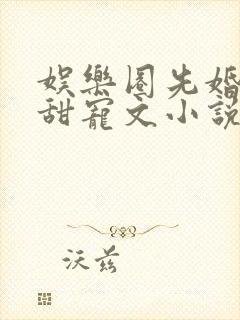 娱樂圈先婚
甜寵文小說
沃兹